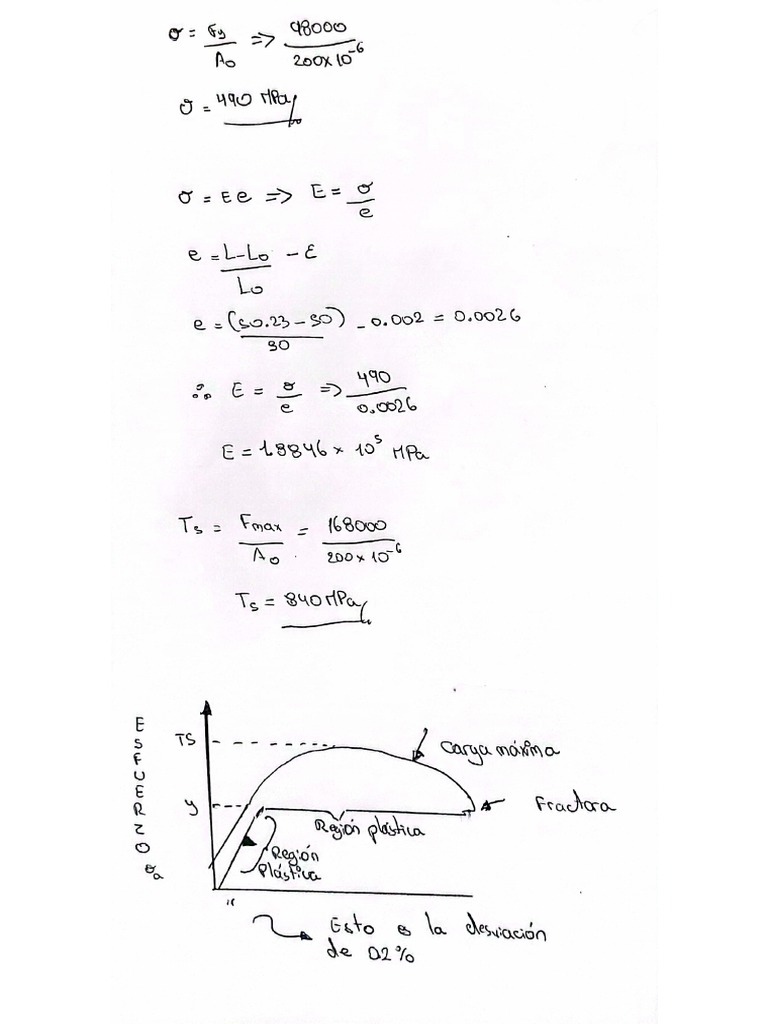 σ = Fy/A₀ => 98000/200x10⁻⁶
σ = 490 MPa
σ = Ee => E = σ/e
e = L-L₀/L₀ - ε
e = (50.23 - 50)/50 - 0.002 = 0.0026
∴ E = σ/e => 490/0.0026
E = 1.8846 x 10⁵ MPa
Ts = Fmax/A₀ = 168000/200x10⁻⁶
Ts = 840 MPa
ESFUERZO
TS
Carga máxima
y
Fractora
Región plástica
Región
Plástica
Esto es la desviación
de 0.2%